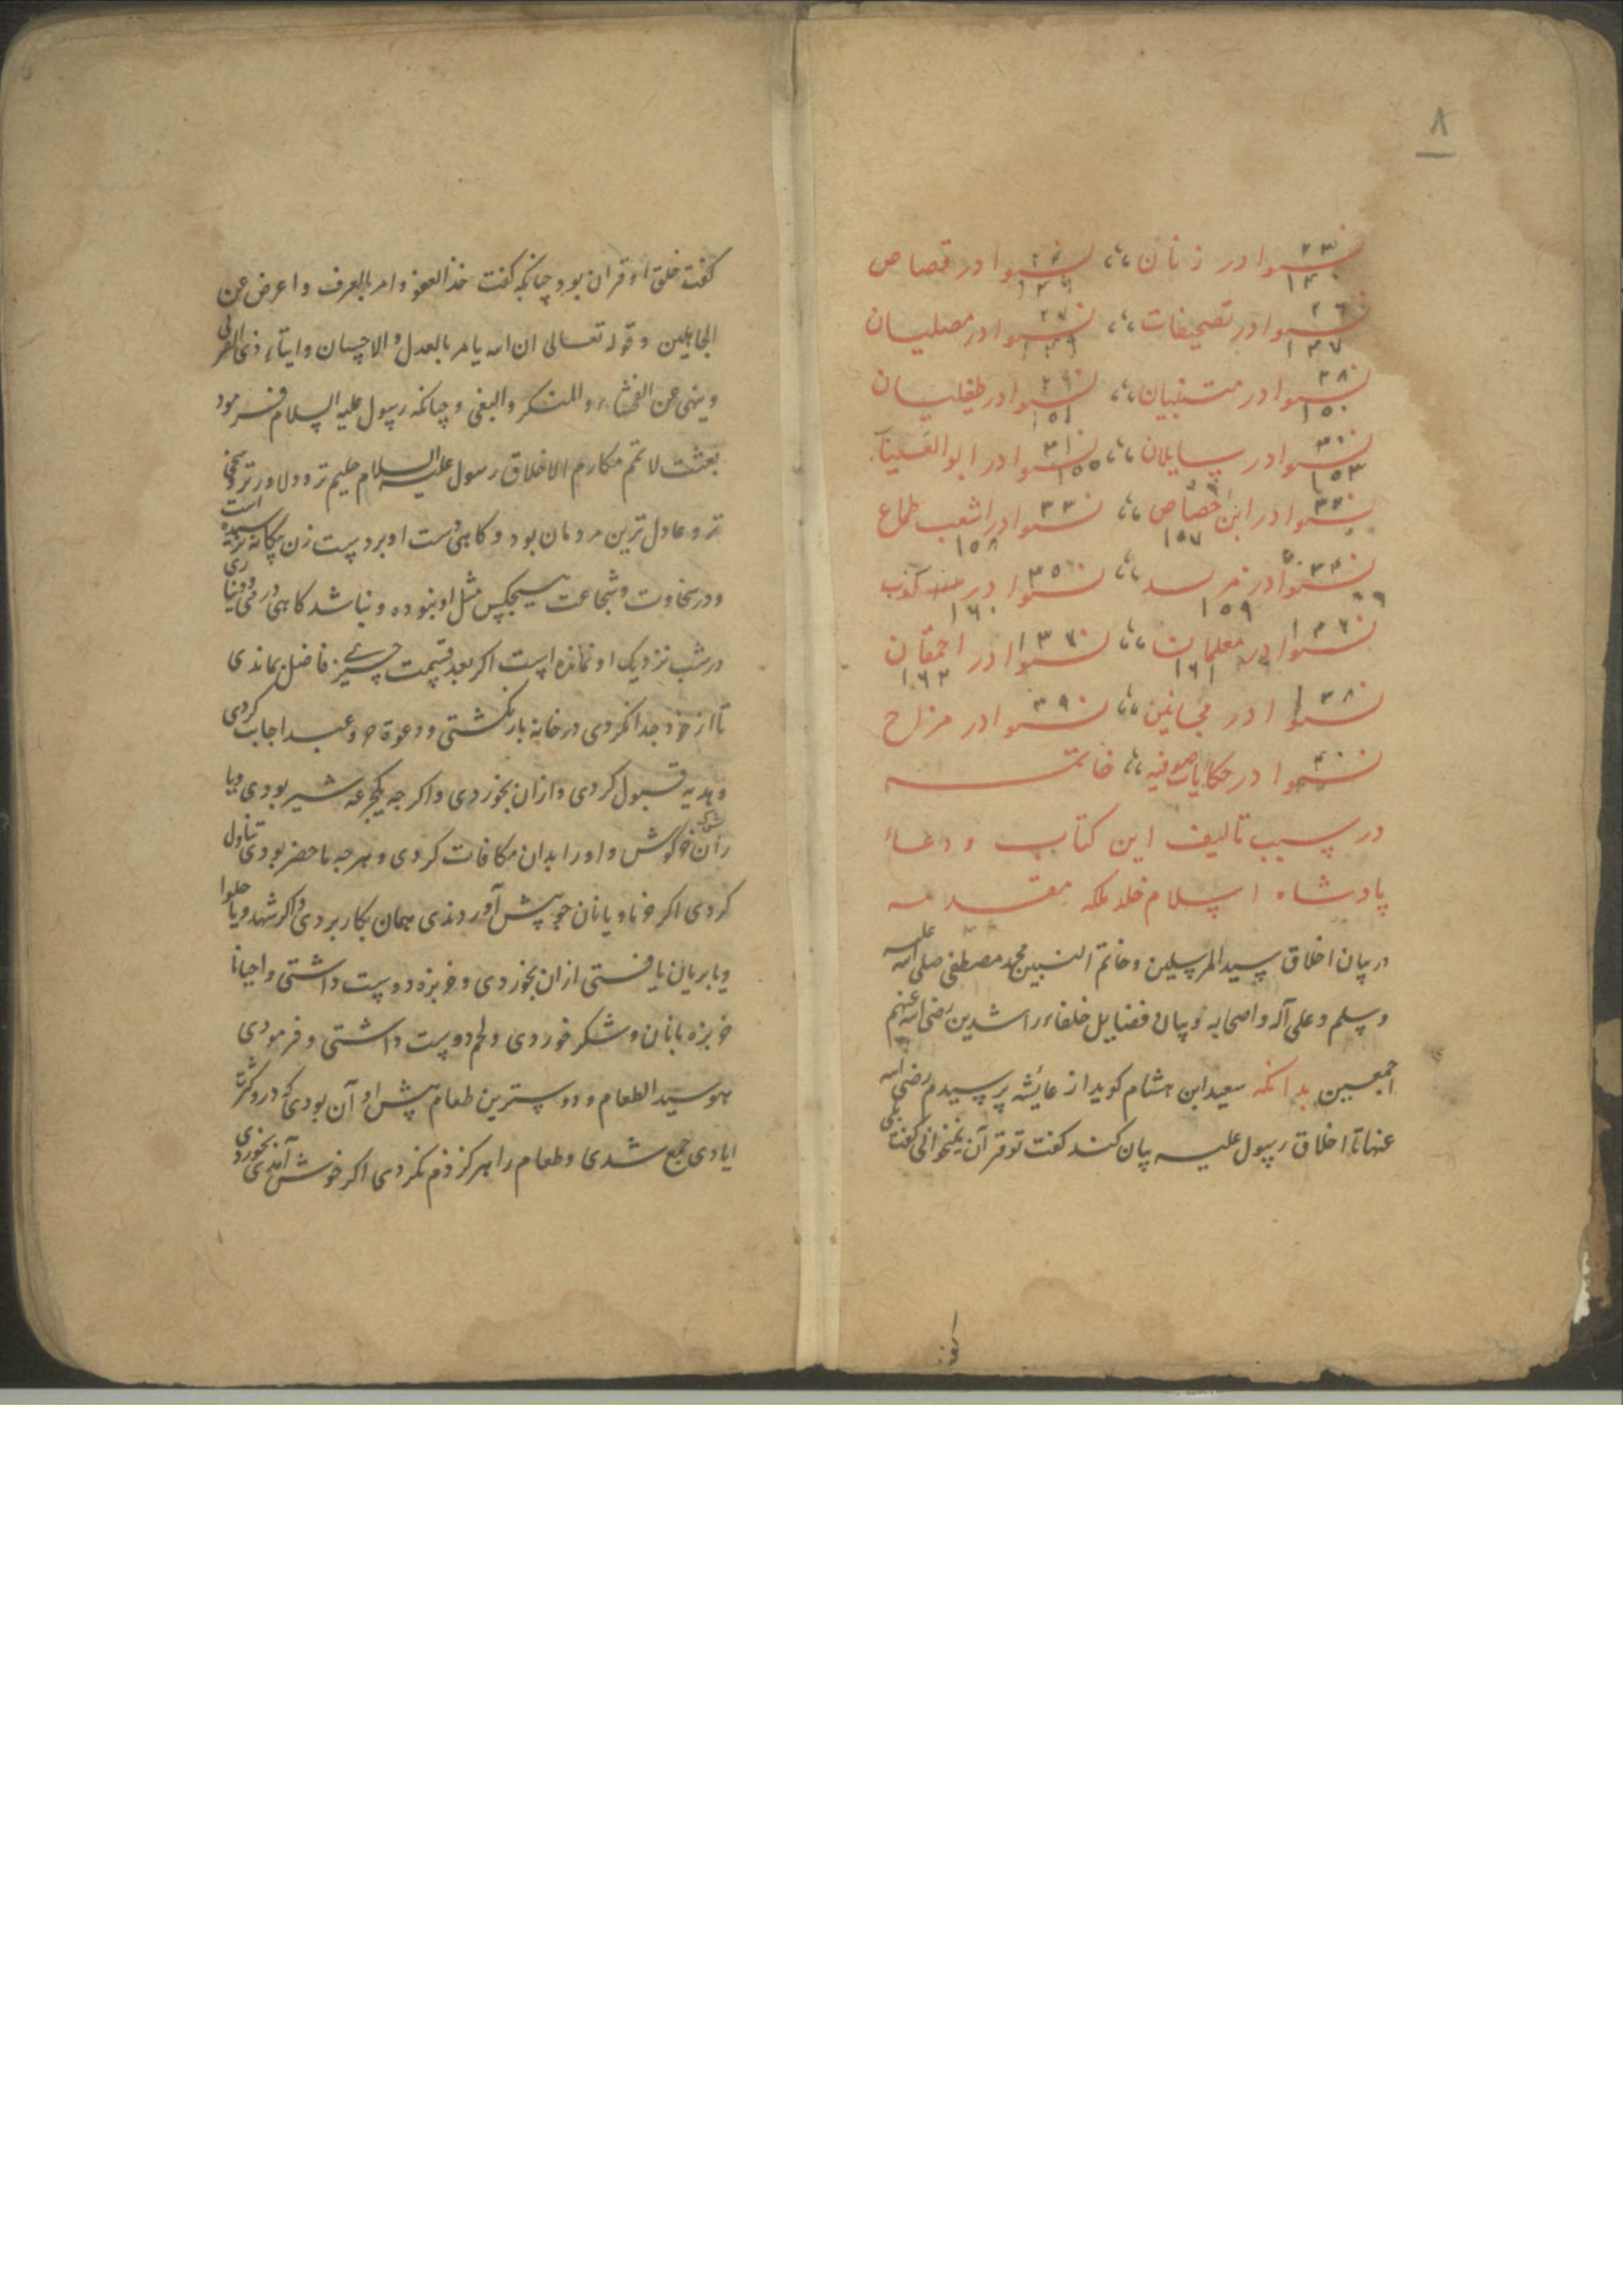 ٨
نوادر زنان ،، نوادر قصاص
نوادر تصحیفات ،، نوادر مصلیان
١٣٧
نوادر متنبیان ،، نوادر طفیلیان
١٥٠ ١٥١
نوادر سایلان ،، نوادر ابو العینا
١٥٣ ١٥٥
نوادر ابن خصاص ،، نوادر اشعب طماع
١٥٧ ١٥٨
نوادر مزبد ،، نوادر کذب
١٥٩ ١٦٠
نوادر معلمان ،، نوادر احمقان
١٦١ ١٦٢
نوادر مجانین ،، نوادر مزاح
نوادر حکایات صوفیه ،، خاتمه
در سبب تالیف این کتاب و دعاء
پادشاه اسلام خلد ملکه مقدمه
در بیان اخلاق سید المرسلین و خاتم النبیین محمد مصطفی صلی الله علیه
وسلم و علی آله و اصحابه و بیان فضایل خلفاء راشدین رضی الله عنهم
اجمعین بدانکه سعید ابن هشام کوید از عایشه پرسیدم رضی الله
عنها تا اخلاق رسول علیه بیان کند کفت تو قرآن نمیخوانی کفت بلی
کفت خلق او قران بود چنانکه کفت خذ العفو و امر بالعرف و اعرض عن
الجاهلین و قوله تعالی ان الله یامر بالعدل و الاحسان و ایتاء ذی القربی
و ینهی عن الفحشاء و المنکر والبغی و چنانکه رسول علیه السلام فرمود
بعثت لاتمم مکارم الاخلاق رسول علیه السلام حلیم تر و دلاورتر و سخی
تر و عادل ترین مردمان بود و کاهی دست او بر دست زن بیکانه نرسیده است
و در سخاوت و شجاعت هیچکس مثل او نبوده و نباشد کاهی درمی و دیناری
در شب نزدیک او نمانده است اکر بعد قسمت چیزی فاضل بماندی
تا از خود جدا نکردی در خانه باز نکشتی و دعوة حر و عبد اجابت کردی
و هدیه قبول کردی و ازان بخوردی و اکر چه یکجرعه شیر بودی ویا
ران خرکوش و او را بدان مکافات کردی و هر چه ما حضر بودی تناول
کردی اکر خرما و یا نان جو پیش آوردندی همان بکار بردی و اکر شهد ویا حلوا
ویا بریان یافتی ازان بخوردی و خربزه دوست داشتی و احیانا
خربزه با نان و شکر خوردی و لحم دوست داشتی و فرمودی
هو سید الطعام و دوسترین طعام پیش او آن بودی که درو کثرت
ایادی جمع شدی و طعام را هرکز ذم نکردی اکر خوش آمدی بخوردی